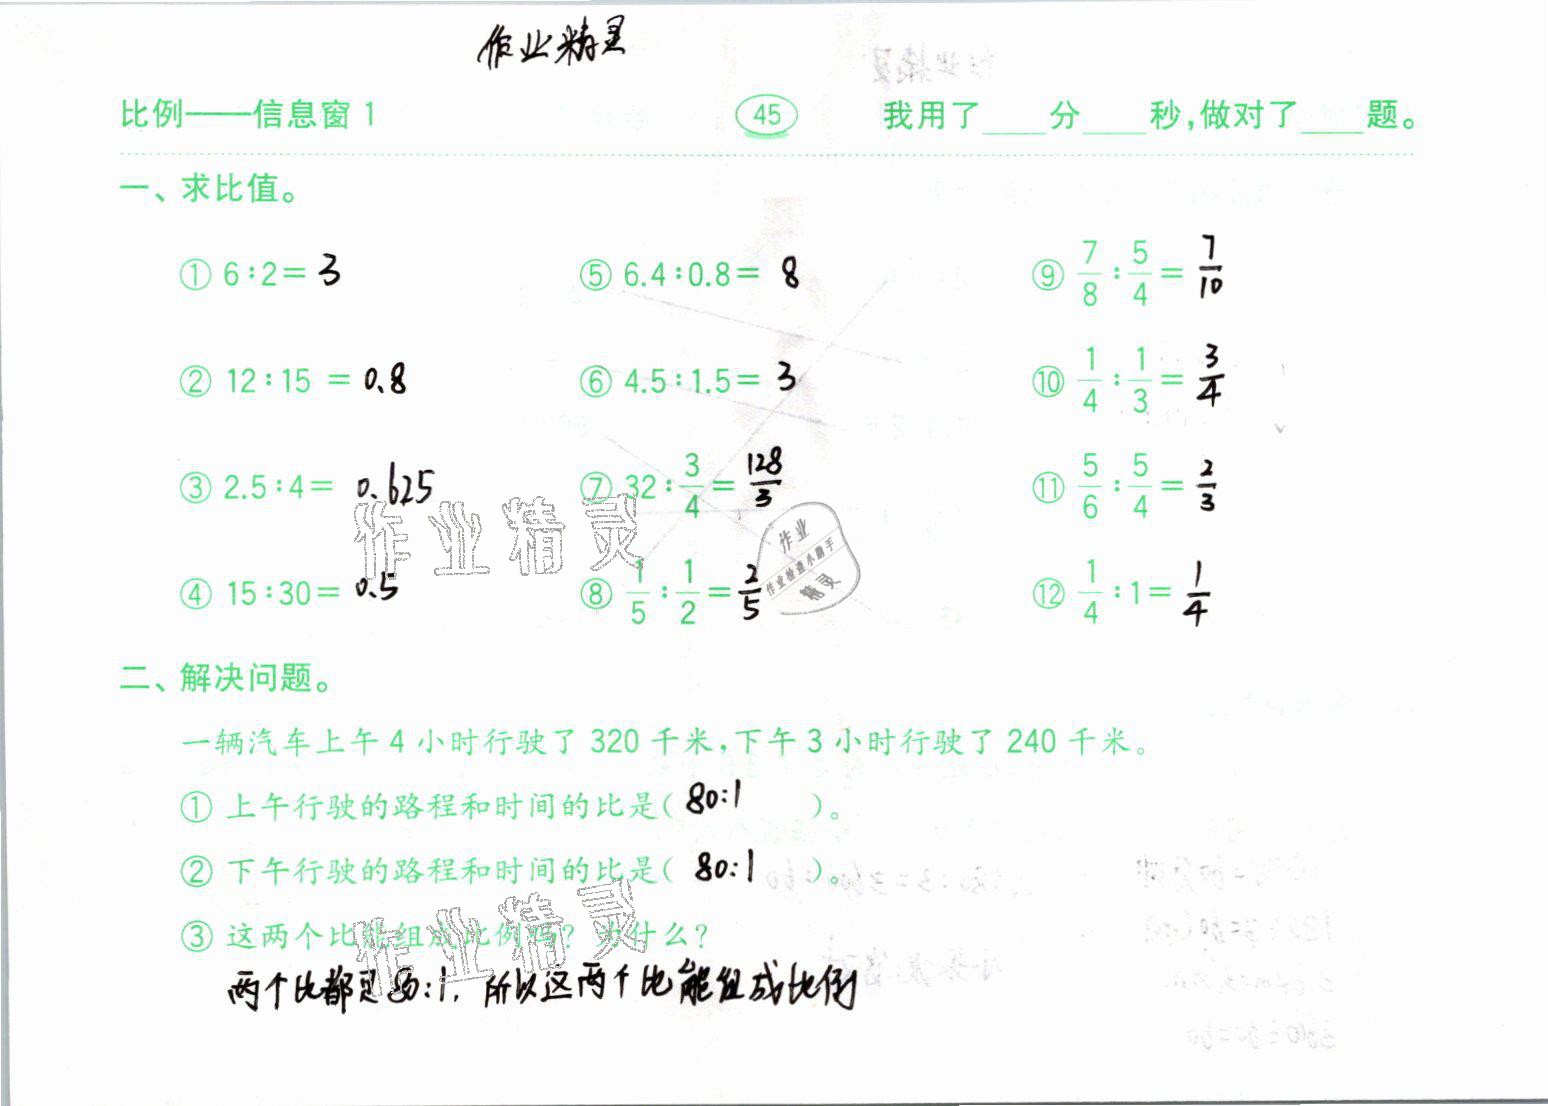 作业精灵
比例——信息窗1 45 我用了____分____秒,做对了____题。
一、求比值。
① 6:2= 3 ⑤ 6.4:0.8= 8 ⑨ 7/8:5/4= 7/10
② 12:15 = 0.8 ⑥ 4.5:1.5= 3 ⑩ 1/4:1/3= 3/4
③ 2.5:4= 0.625 ⑦ 32:3/4= 128/3 ⑪ 5/6:5/4= 2/3
作业精灵
作业
作业检查小助手
精灵
④ 15:30= 0.5 ⑧ 1/5:1/2= 2/5 ⑫ 1/4:1= 1/4
二、解决问题。
一辆汽车上午4小时行驶了320千米,下午3小时行驶了240千米。
① 上午行驶的路程和时间的比是( 80:1 )。
② 下午行驶的路程和时间的比是( 80:1 )。
③ 这两个比能组成比例吗?为什么?
作业精灵
两个比都是80:1,所以这两个比能组成比例